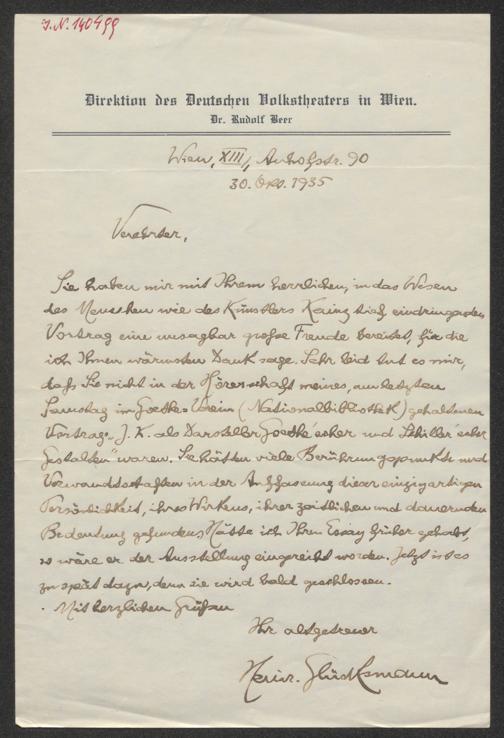 J.N. 140499
Direktion des Deutschen Volkstheaters in Wien.
Dr. Rudolf Beer
Wien, XIII, Auhofstr. 90
30. Okt. 1935
Verehrter,
Sie haben mir mit Ihrem herrlichen, in das Wesen
des Menschen wie des Künstlers Kainz tief eindringenden
Vortrag eine unsagbar große Freude bereitet, für die
ich Ihnen wärmsten Dank sage. Sehr leid tut es mir,
daß Sie nicht in der Hörerschaft meines, am letzten
Samstag im Goethe-Verein (Nationalbibliothek) gehaltenen
Vortrags „J. K. als Darsteller Goethe'scher und Schiller'scher
Gestalten" waren. Sie hätten viele Berührungspunkte und
Verwandtschaften in der Auffassung dieser einzigartigen
Persönlichkeit, ihres Wirkens, ihrer zeitlichen und dauernden
Bedeutung gefunden. Hätte ich Ihren Essay früher gehabt,
so wäre er der Ausstellung eingereiht worden. Jetzt ist es
zu spät dazu, denn sie wird bald geschlossen.
Mit herzlichen Grüßen
Ihr altgetreuer
Heinr. Glücksmann